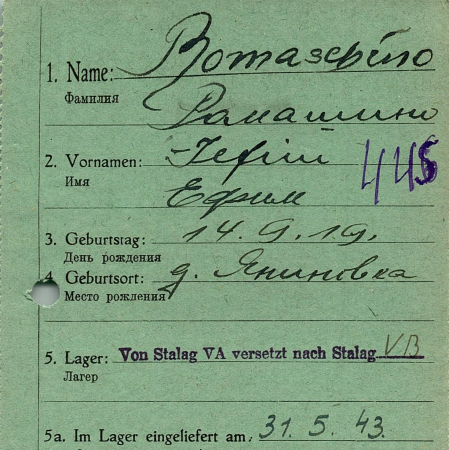 1. Name: Romaschino
Фамилия Ромашино
2. Vornamen: Jefim
Имя Ефим
445
3. Geburtstag: 14. 9. 19.
День рождения
4. Geburtsort: д. Яниновка
Место рождения
5. Lager: Von Stalag VA versetzt nach Stalag VB
Лагер
5a. Im Lager eingeliefert am: 31. 5. 43.